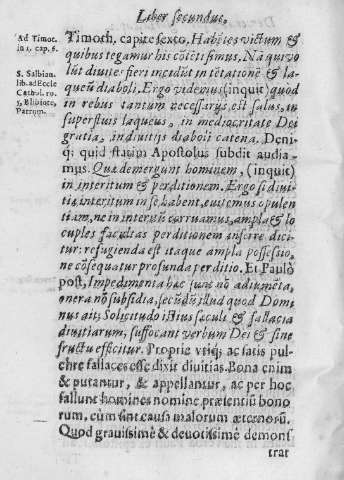 Liber secundus.
Ad Timot.
in 1. cap. 6.
S. Salbian.
lib. ad Eccle
Cathol. to.
5. Bibliote.
Patrum.
Timoth, capite sexto, Habētes victum &
quibus tegamur his cōtēti simus, Nā qui vo
lūt diuites fieri incidūt in tētationē & la-
queū diaboli. Ergo videmus (inquit) quod
in rebus tantum necessarijs est salus, in
superfluis laqueus, in mediocritate Dei
gratia, in diuitijs diaboli catena. Deni-
q; quid statim Apostolus subdit audia-
mus. Quæ demergunt hominem, (inquit)
in interitum & perditionem. Ergo si diui-
tiæ interitum in se habent, euitemus opulen
tiam, ne in interitū corruamus, ampla & lo
cuples facultas perditionem inferre dici
tur: refugienda est itaque ampla possessio,
ne cōsequatur profunda perditio. Et Paulò
post, Impedimenta hæc sunt nō adiumēta,
onera nō subsidia, secūdū illud quod Domi
nus ait; Solicitudo istius seculi & fallacia
diuitiarum, suffocant verbum Dei & sine
fructu efficitur. Propriè vtiq; ac satis pul-
chre fallaces esse dixit diuitias. Bona enim
& putantur, & appellantur, ac per hoc
fallunt homines nomine præsentiū bono
rum, cùm sint causa malorum æternorū.
Quod grauissimè & deuotissimè demonst
trat